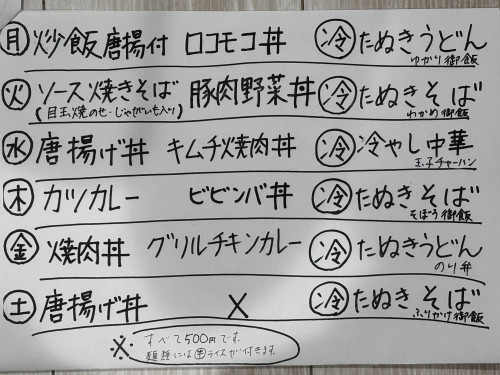 月 炒飯唐揚付 ロコモコ丼 冷たぬきうどん
ゆかり御飯
火 ソース焼きそば 豚肉野菜丼 冷たぬきそば
(目玉焼のせ・じゃがいも入り) わかめ御飯
水 唐揚げ丼 キムチ焼肉丼 冷冷やし中華
玉子チャーハン
木 カツカレー ビビンバ丼 冷たぬきそば
そぼろ御飯
金 焼肉丼 グリルチキンカレー 冷たぬきうどん
のり弁
土 唐揚げ丼 × 冷たぬきそば
ふりかけ御飯
※ すべて500円です。
麺類には半ライスが付きます。